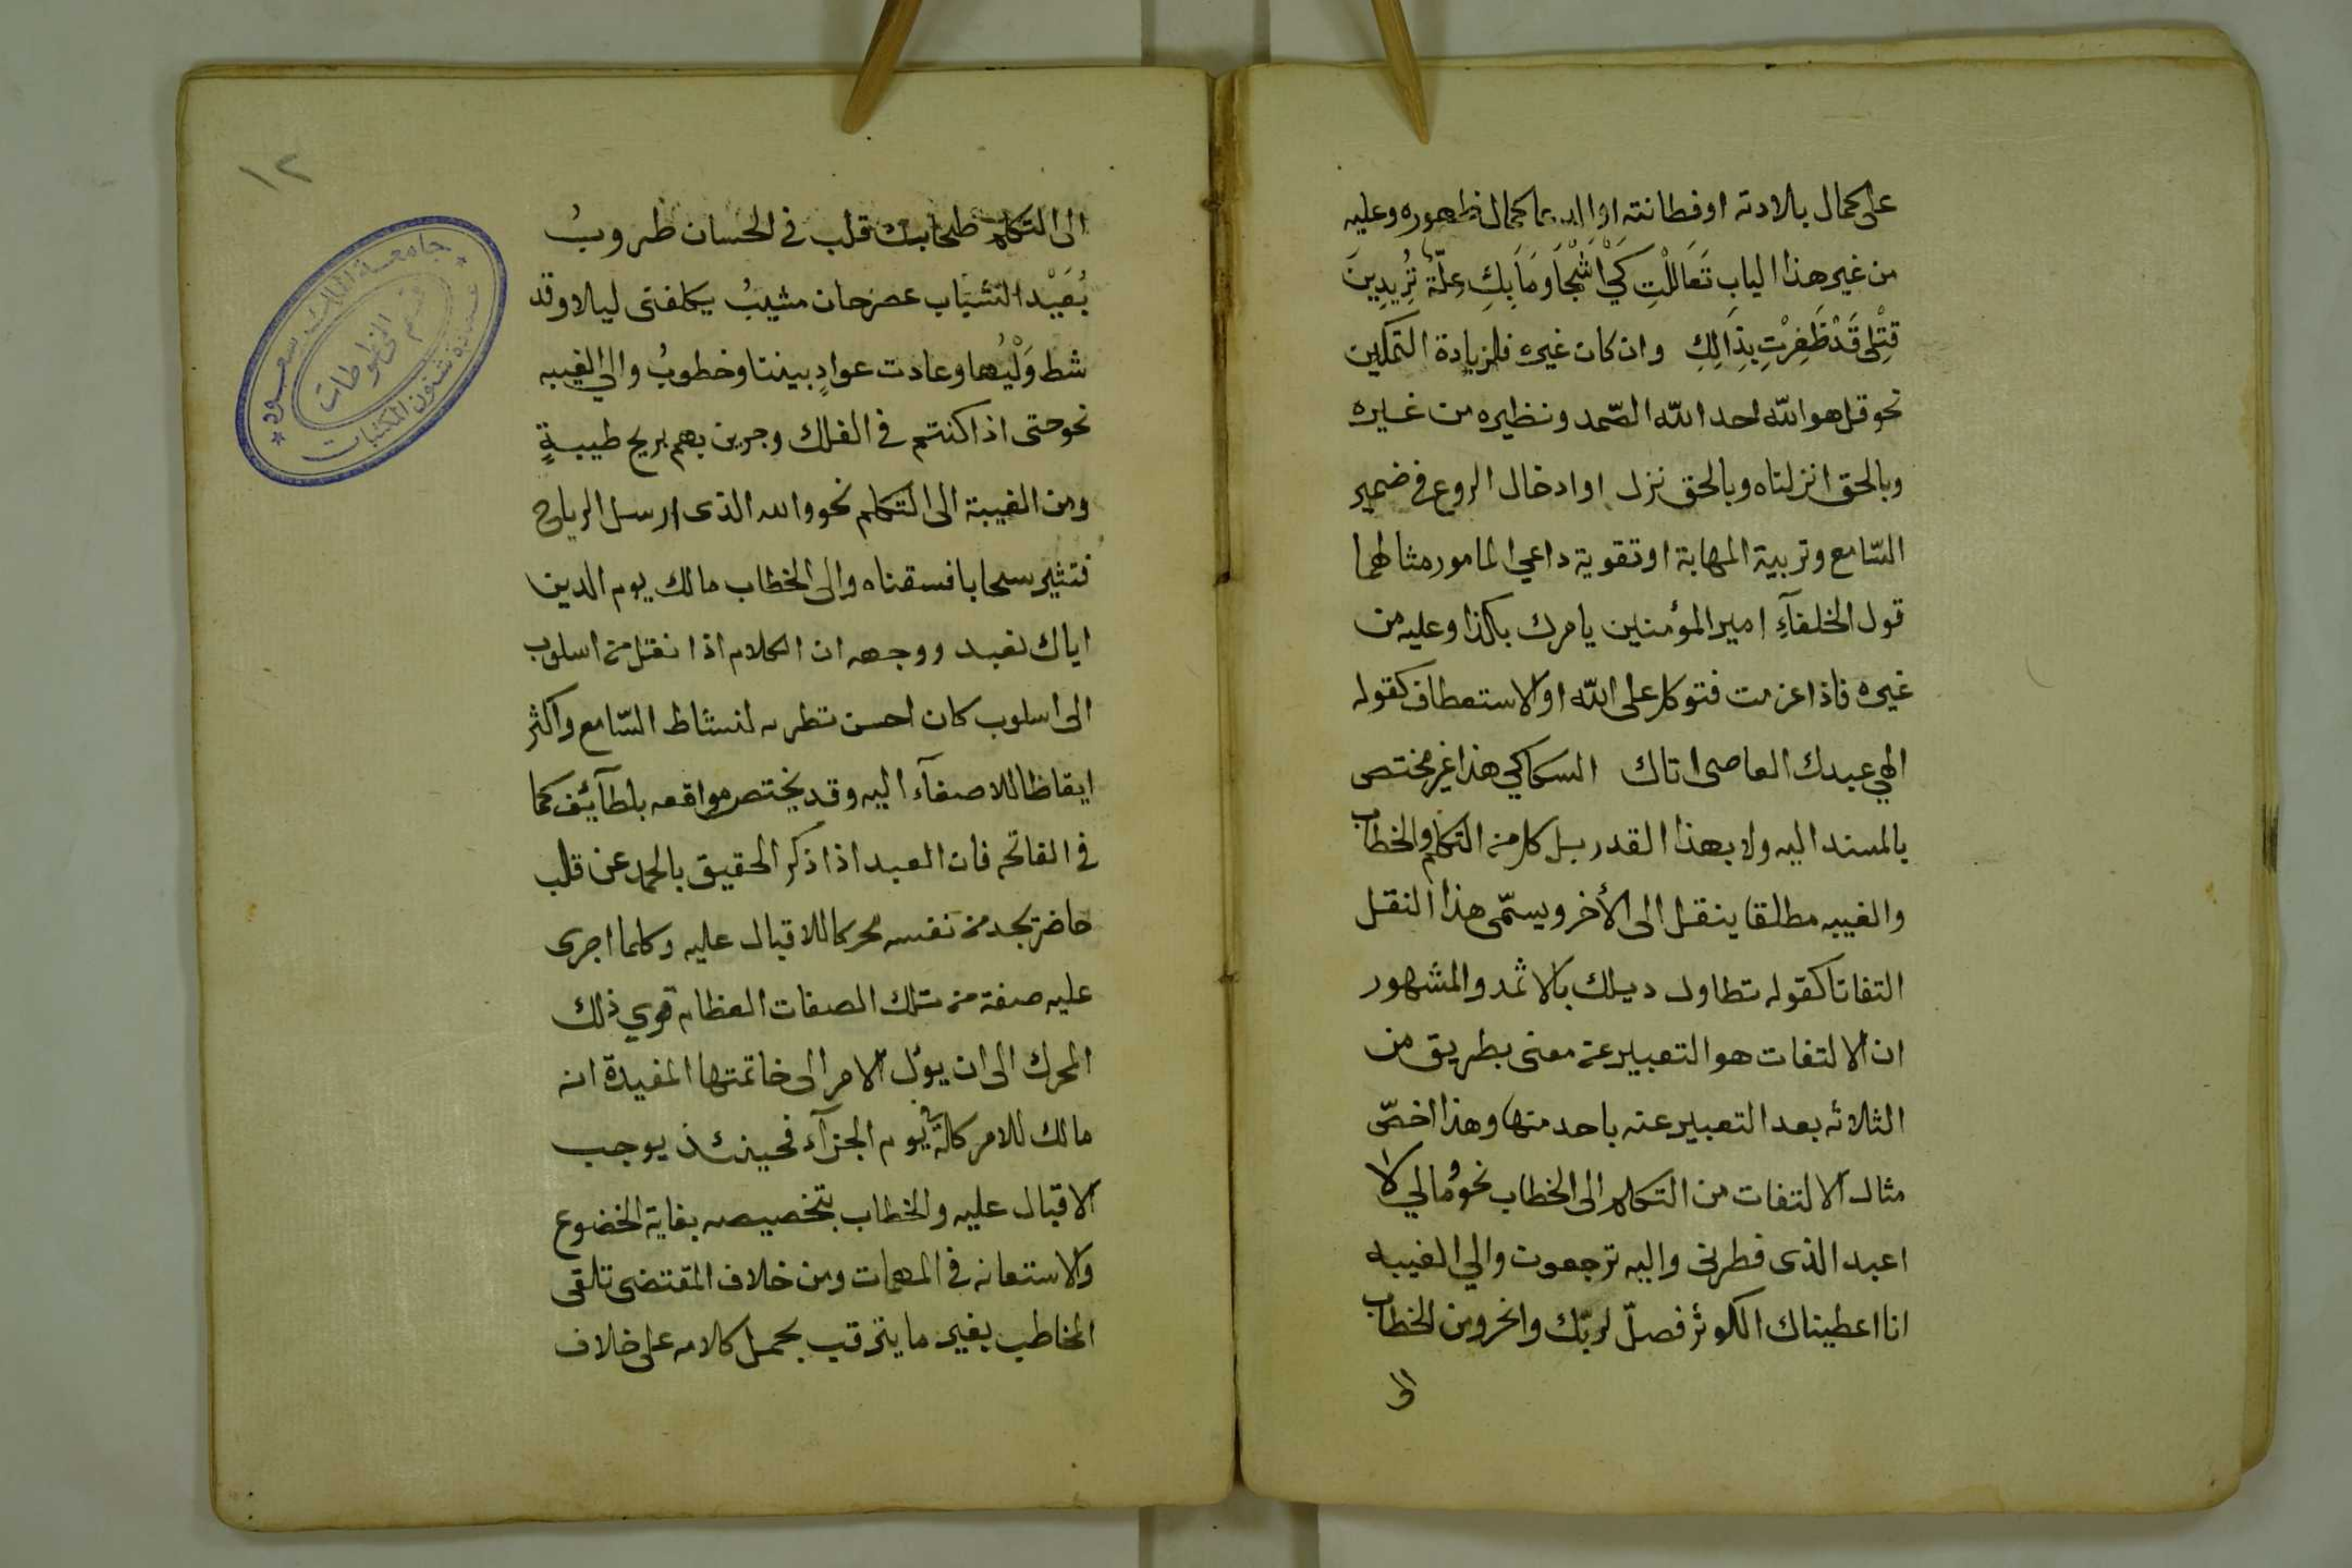 على كمال بلادته او فطانته او ادعا كمال ظهوره وعليه
من غير هذا الباب تَعَالَلْتِ كَيْ أَشْجَا وَمَا بِكِ عِلّةٌ تُرِيدِينَ
قِتْلِى قَدْ ظَفِرْتِ بِذَالِكِ وان كان غيره فلزيادة التمكين
نحو قل هو الله احد الله الصّمد ونظيره من غيره
وبالحق انزلناه وبالحق نزل او ادخال الروع فى ضمير
السّامع وتربية المهابة او تقوية داعي المامور مثالهما
قول الخلفآءِ امير المؤمنين يامرك بكذا وعليه من
غيره فاذا عزمت فتوكل على الله او الاستعطاف كقوله
الهي عبدك العاصى اتاك السكاكي هذا غير مختص
بالمسند اليه ولا بهذا القدر بل كل من التكلم والخطاب
والغيبه مطلقا ينقل الى الأخر ويسمّى هذا النقل
التفاتا كقوله تطاول ديلك بالاثمد والمشهور
ان الالتفات هو التعبير عن معنى بطريق من
الثلاثه بعد التعبير عنه باحد منها وهذا اخصّ
مثال الالتفات من التكلم الى الخطاب نحو ومالي لا
اعبد الذى فطرنى واليه ترجعون والي الغيبه
انا اعطيناك الكوثر فصلّ لربّك وانحر ومن الخطاب
الى
١٢
الى التكلم طحا بك قلب فى الحسان طروبُ
بُعَيْد الشباب عصر حان مشيبُ يكلفنى ليلا وقد
شط وَلْيُها وعادت عوادٍ بيننا وخطوبُ والى الغيبه
نحو حتى اذا كنتم في الفلك وجرين بهم بريح طيبةٍ
ومن الغيبة الى التكلم نحو والله الذى ارسل الرياح
فتثير سحابا فسقناه والى الخطاب مالك يوم الدين
اياك نعبد ووجهه ان الكلام اذا نقل من اسلوب
الى اسلوب كان احسن تطريه لنشاط السّامع واكثر
ايقاظا للاصغآء اليه وقد يختص مواقعه بلطآئف كما
فى الفاتحه فان العبد اذا ذكر الحقيق بالحمد عن قلب
حاضر يجد من نفسه محركا للاقبال عليه وكلما اجرى
عليه صفة من تلك الصفات العظام قوي ذلك
المحرك الى ان يؤل الامر الى خاتمتها المفيدة انه
مالك للامر كله يوم الجزآء فحينئذ يوجب
الاقبال عليه والخطاب بتخصيصه بغاية الخضوع
والاستعانه فى المهمات ومن خلاف المقتضى تلقى
المخاطب بغير ما يترقب بحمل كلامه على خلاف
جامعة الملك سعود
عمادة شئون المكتبات
قسم المخطوطات